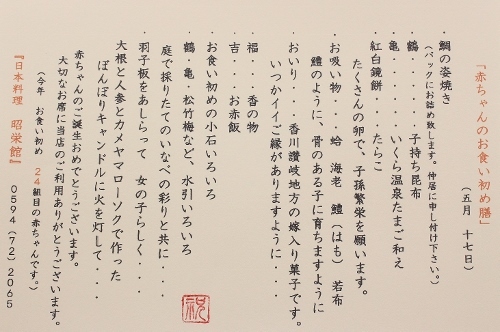 「赤ちゃんのお食い初め膳」
(五月 十七日)
・鯛の姿焼き
(パックにお詰め致します。仲居に申し付け下さい。)
鶴・・・・・子持ち昆布
亀・・・・・いくら温泉たまご和え
紅白鏡餅・・・たらこ
たくさんの卵で、子孫繁栄を願います。
・お吸い物・・・蛤 海老 鱧(はも) 若布
鱧のように、骨のある子に育ちますように
・おいり・・香川讃岐地方の嫁入り菓子です。
いつかイイご縁がありますように・・・・
・福・・香の物
吉・・お赤飯
・お食い初めの小石いろいろ
・鶴・亀・松竹梅など、水引いろいろ
庭で採りたてのいなべの彩りと共に・・・
・羽子板をあしらって 女の子らしく・・・
・大根と人参とカメヤマローソクで作った
ぼんぼりキャンドルに火を灯して・・・・
赤ちゃんのご誕生おめでとうございます。
大切なお席に当店のご利用ありがとうございます。
(今年 お食い初め 24組目の赤ちゃんです。)
『日本料理 昭栄館』 0594(72)2065
祝